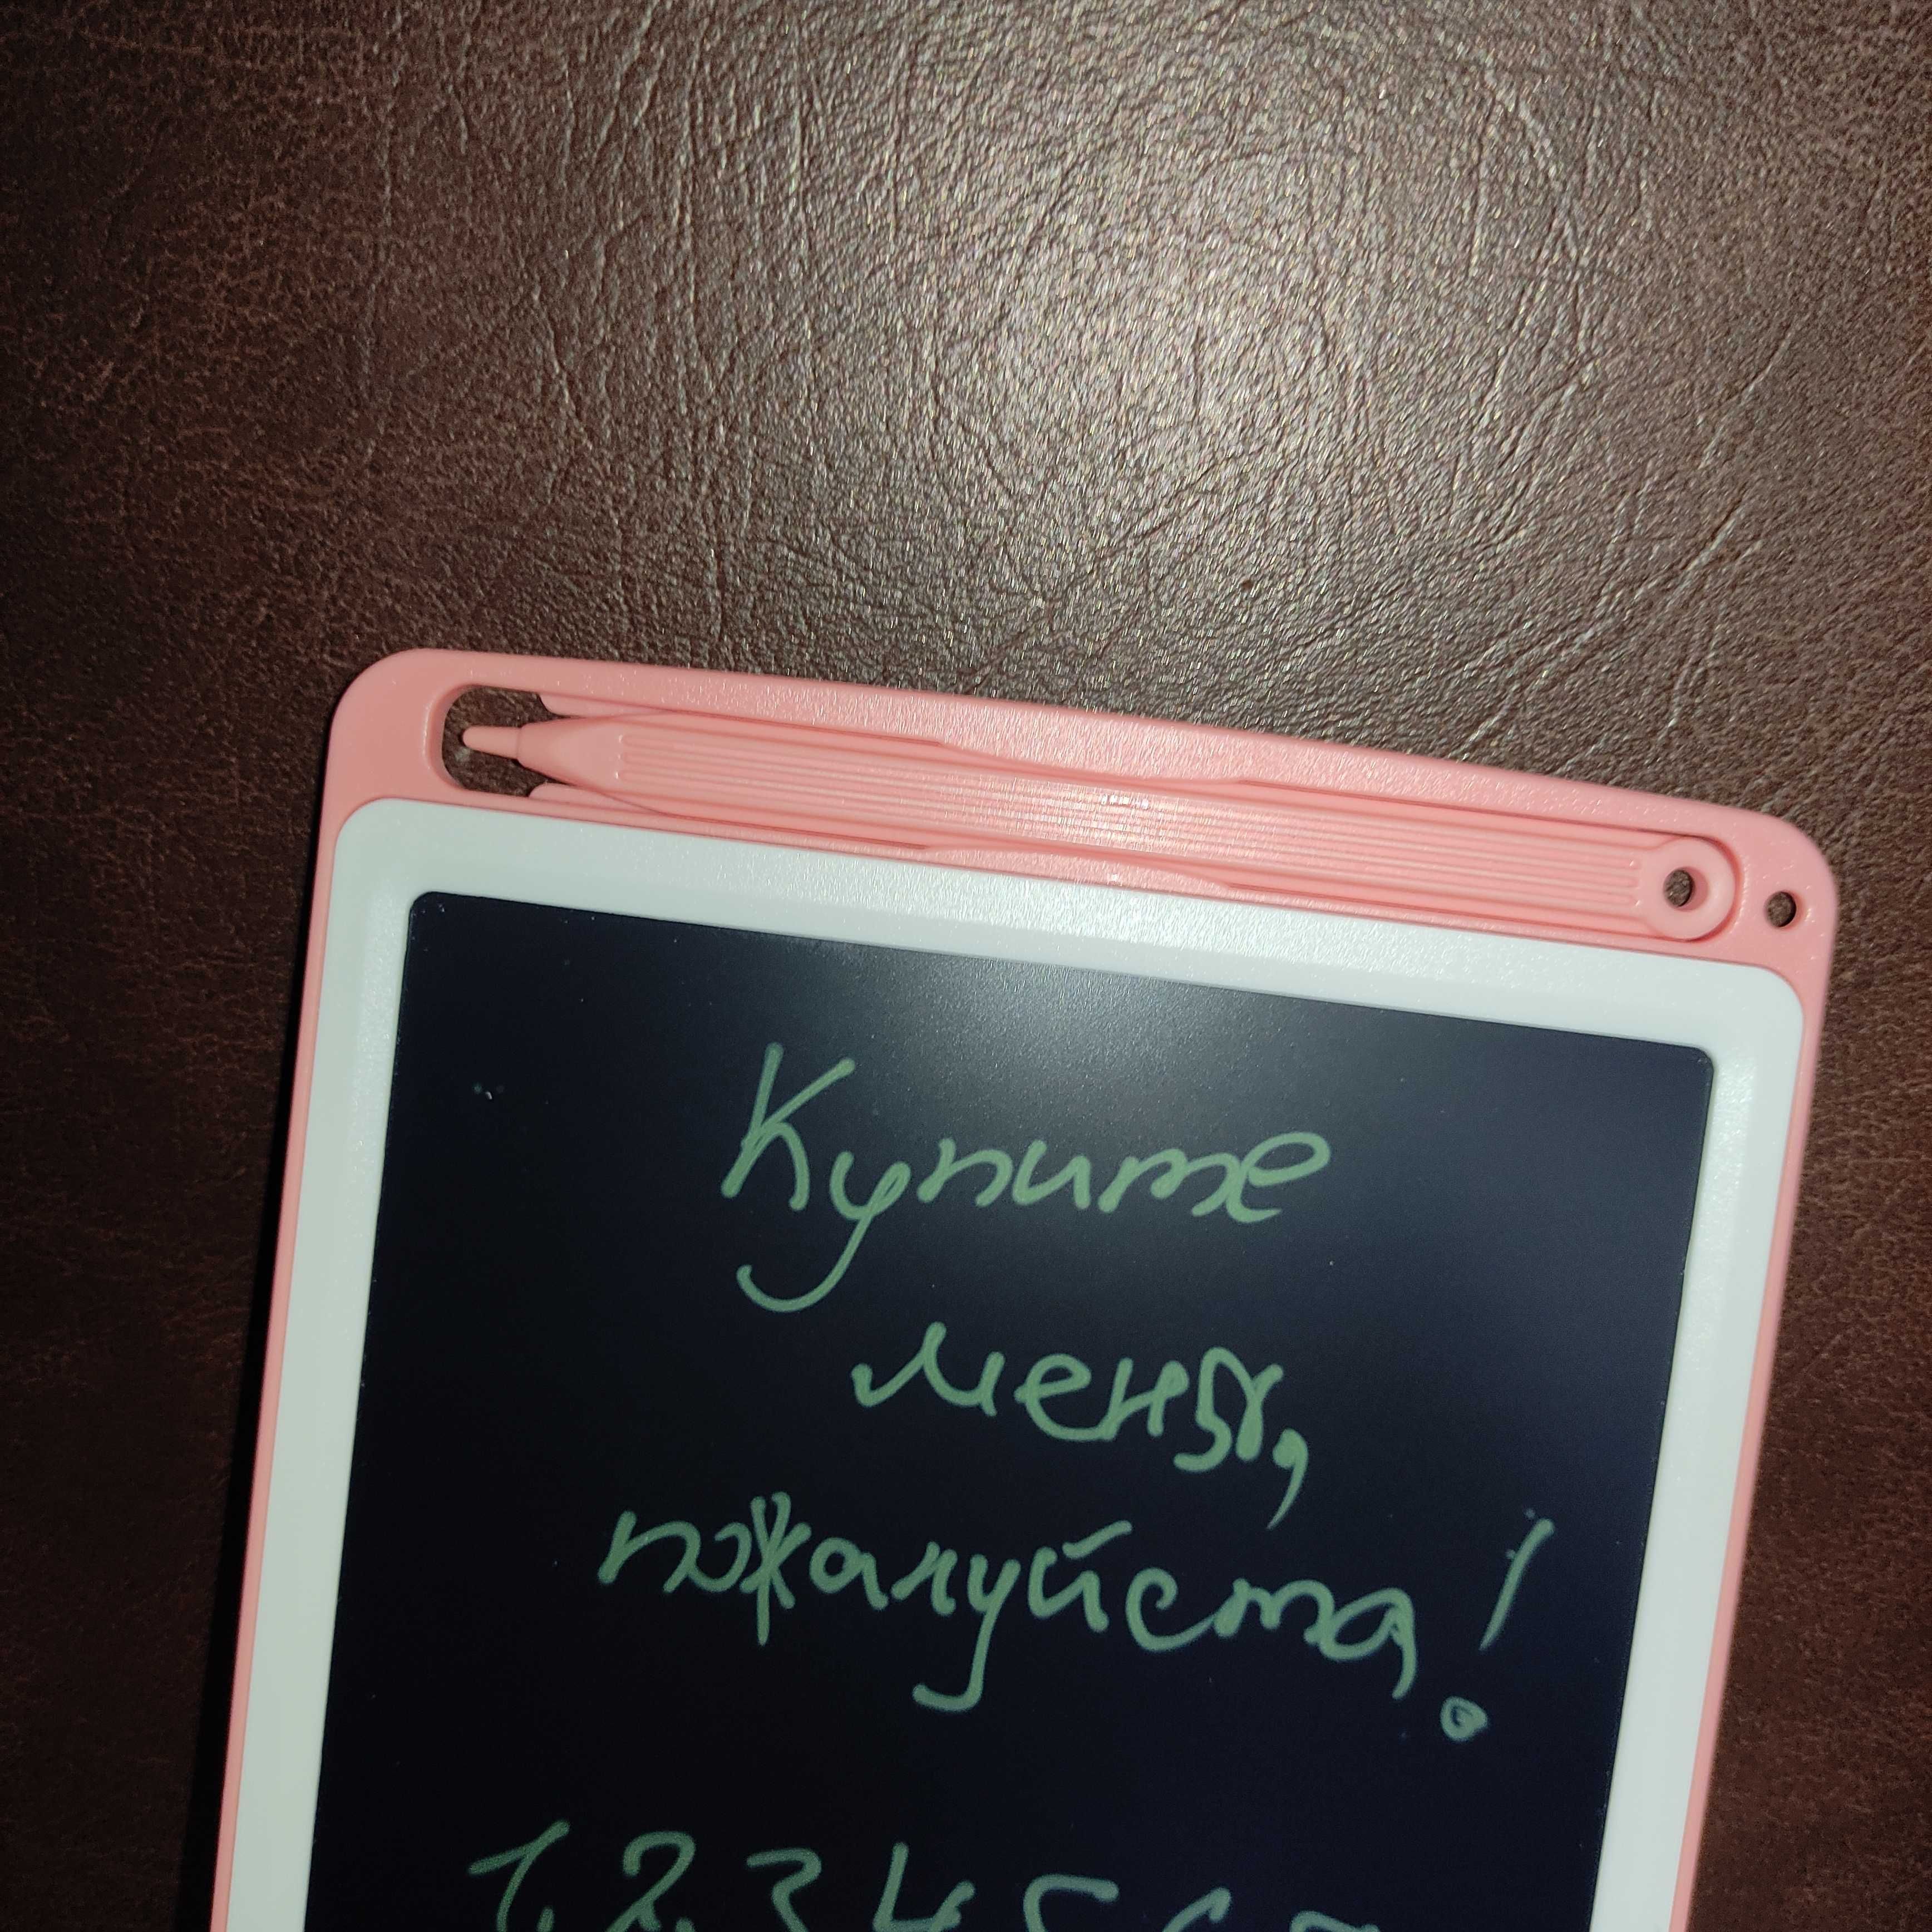 Купите
меня,
пожалуйста!
1,2,3 4 5 6 7